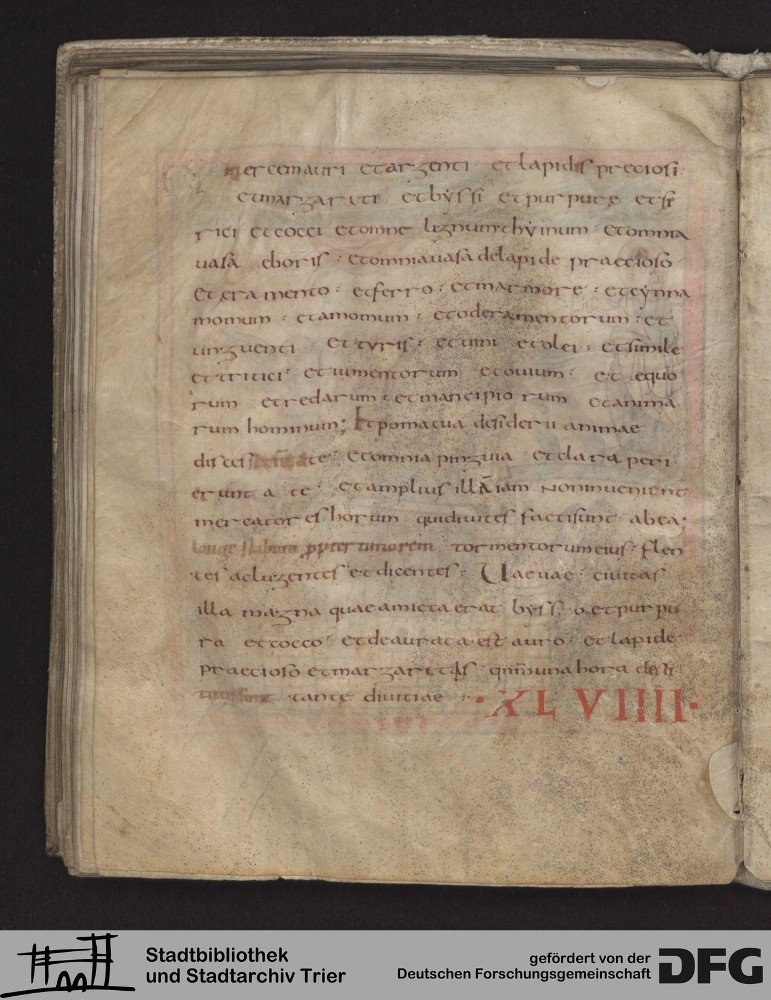 mercem auri et argenti et lapidis preciosi
et margarite et byssi et purpure et se
rici et cocci et omne lignum thyinum et omnia
uasa eboris · et omnia uasa de lapide praecioso
et eramento · et ferro · et marmore · et cynna
momum · et amomum · et oderamentorum · et
unguenti et turis · et uini et olei · et simile
et tritici · et iumentorum et ouium · et equo
rum et redarum · et mancipiorum et anima
rum hominum; Et poma tua desiderii animae
discesserunt a te · et omnia pinguia et clara peri
erunt a te · et amplius illa iam non inuenient
mercatores horum qui diuites facti sunt ab ea ·
longe stabunt propter timorem tormentorum eius · flen
tes ac lugentes et dicentes · Uae uae · ciuitas
illa magna quae amicta erat bysso et purpu
ra et cocco · et deaurata est auro · et lapide
praecioso et margaritis · qm̄ in una hora desti
tutae sunt tante diuitiae · ·XLVIIII·
Stadtbibliothek
und Stadtarchiv Trier
gefördert von der
Deutschen Forschungsgemeinschaft
DFG